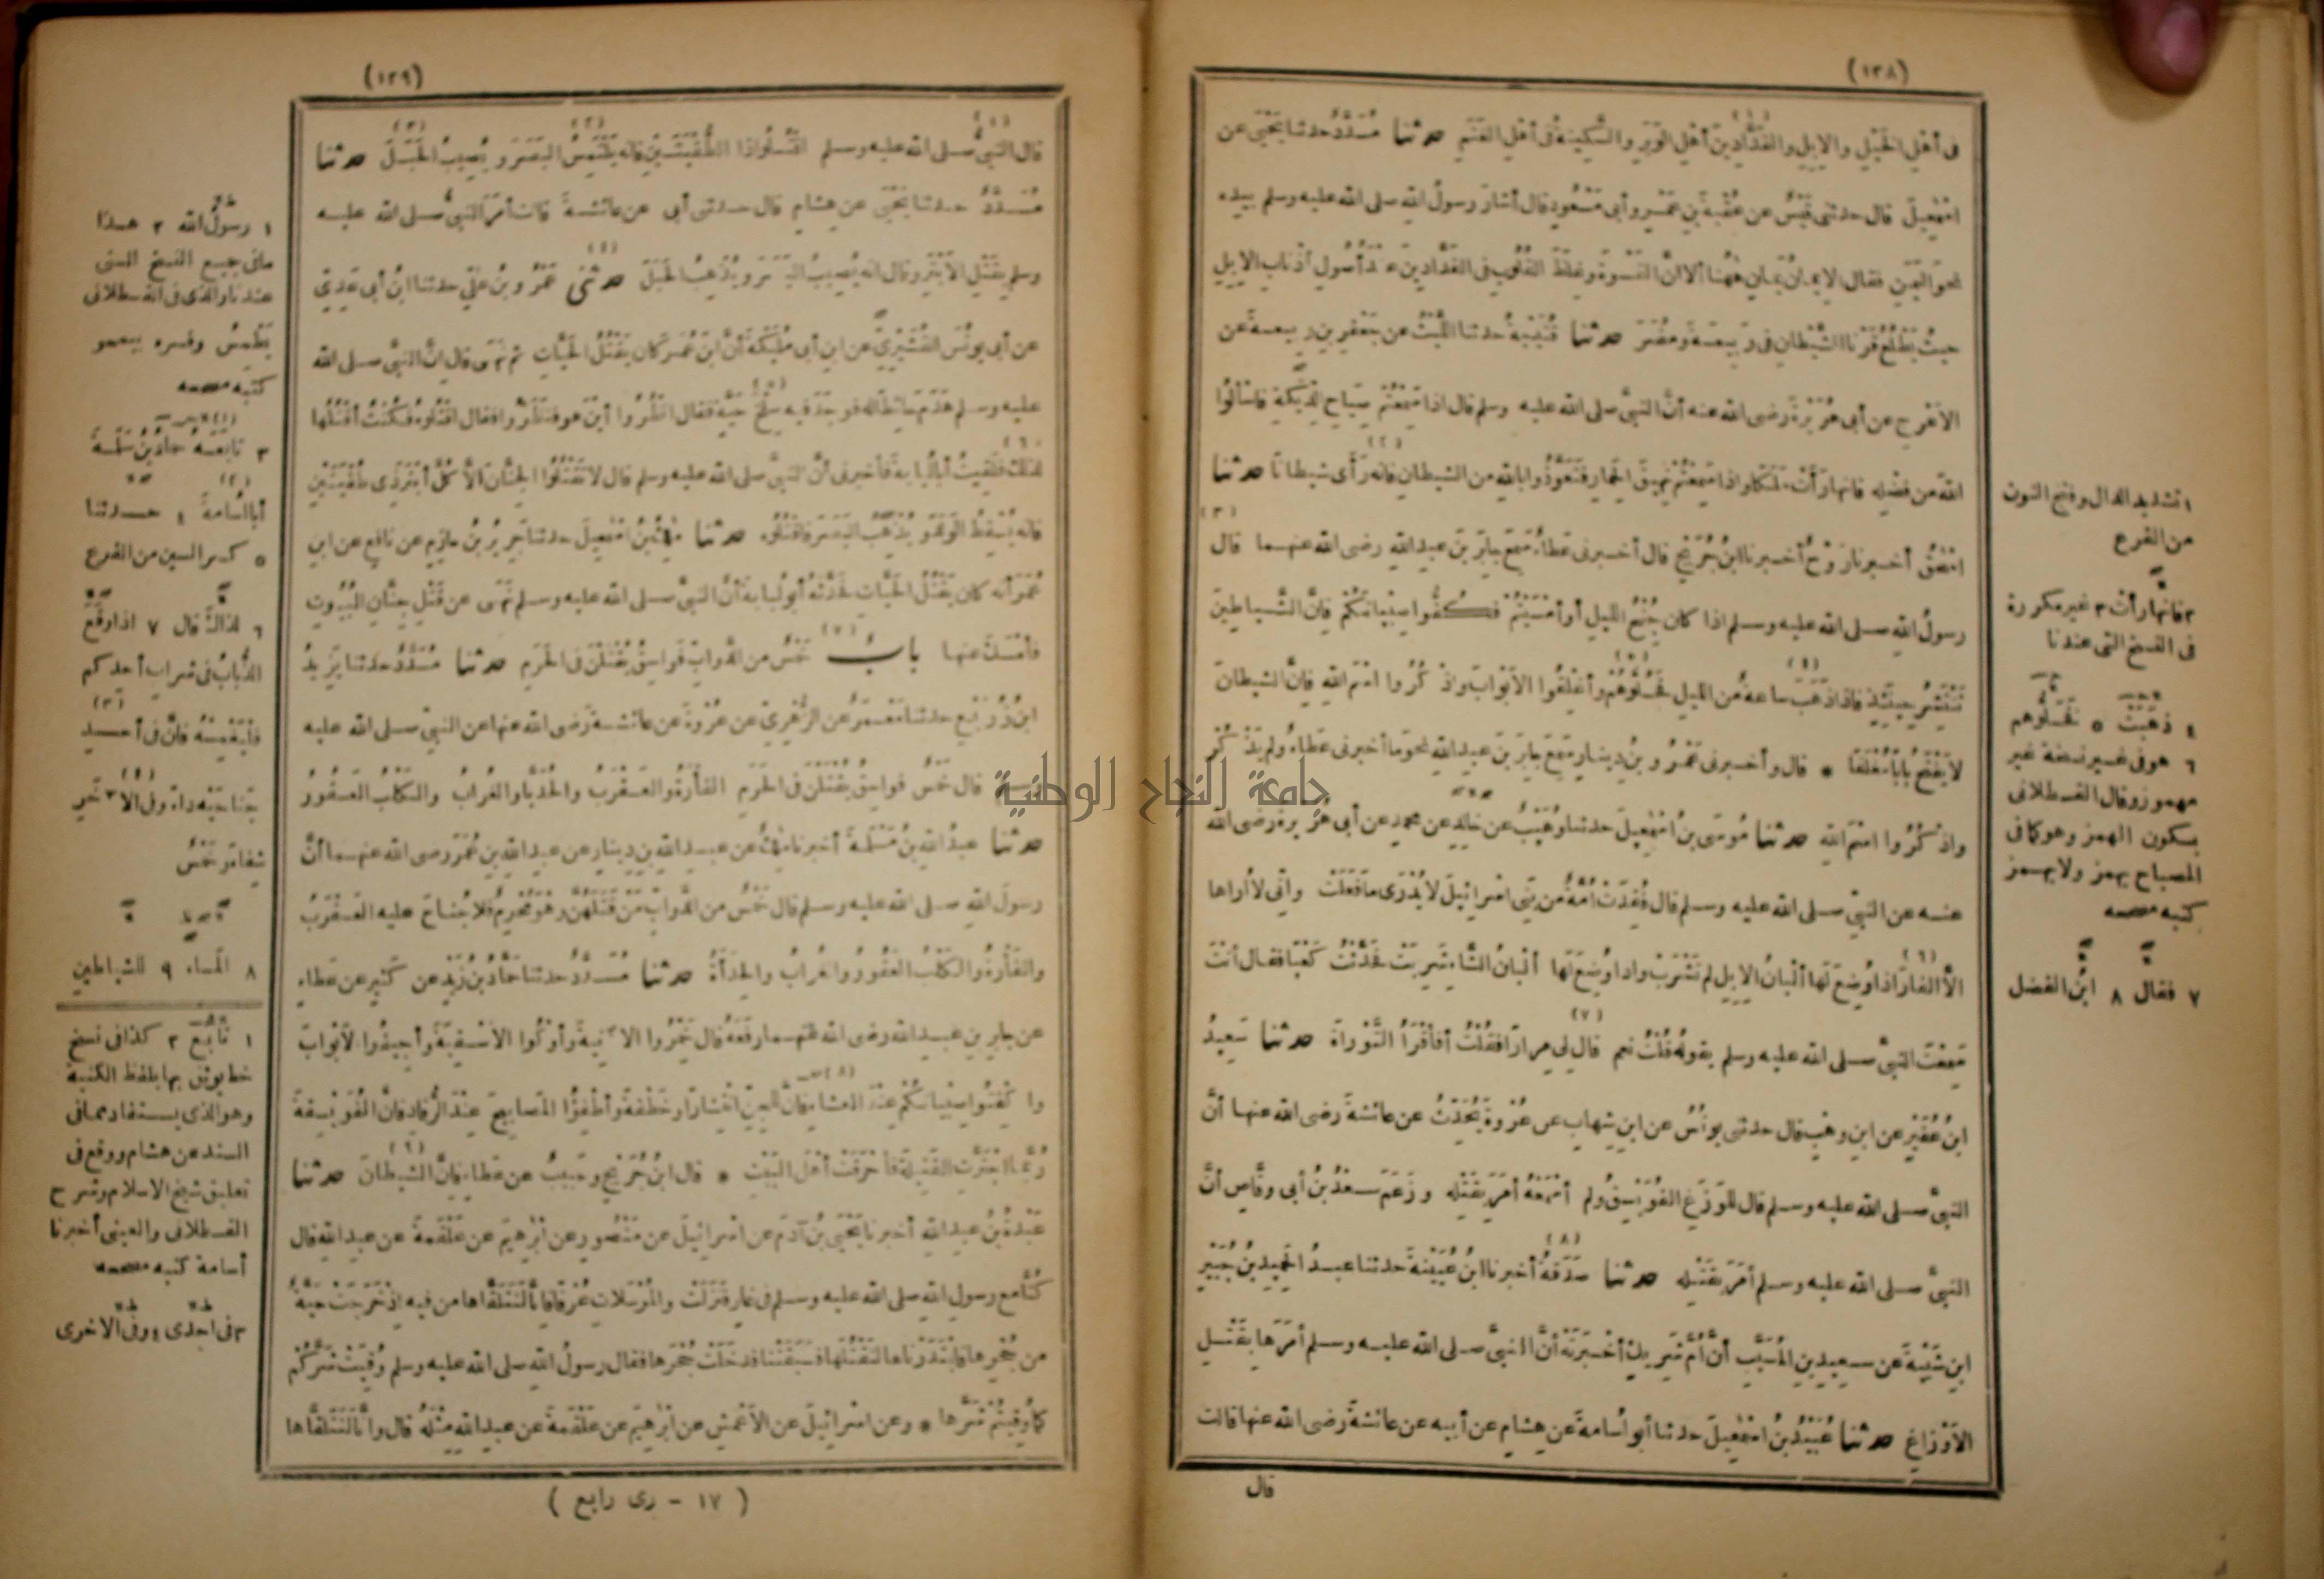 (١٢٨)
فى أهل الخيل والابل والفدادين أهل الوبر والسكينة فى أهل الغنم حدثنا مسدد حدثنا يحيى عن
اسمعيل قال حدثنى قيس عن عقبة بن عمرو أبى مسعود قال أشار رسول الله صلى الله عليه وسلم بيده
نحو اليمن فقال الايمان يمان ههنا ألا ان القسوة وغلظ القلوب فى الفدادين عند أصول أذناب الابل
حيث يطلع قرنا الشيطان فى ربيعة ومضر حدثنا قتيبة حدثنا الليث عن جعفر بن ربيعة عن
الاعرج عن أبى هريرة رضى الله عنه أن النبى صلى الله عليه وسلم قال اذا سمعتم صياح الديكة فاسألوا
الله من فضله فانها رأت ملكا واذا سمعتم نهيق الحمار فتعوذوا بالله من الشيطان فانه رأى شيطانا حدثنا
اسحق أخبرنا روح أخبرنا ابن جريج قال أخبرنى عطاء سمع جابر بن عبد الله رضى الله عنهما قال
رسول الله صلى الله عليه وسلم اذا كان جنح الليل أو أمسيتم فكفوا صبيانكم فان الشياطين
تنتشر حينئذ فاذا ذهب ساعة من الليل فحلوهم وأغلقوا الابواب واذكروا اسم الله فان الشيطان
لا يفتح بابا مغلقا * قال وأخبرنى عمرو بن دينار سمع جابر بن عبد الله نحو ما أخبرنى عطاء ولم يذكر
واذكروا اسم الله حدثنا موسى بن اسمعيل حدثنا وهيب عن خالد عن محمد عن أبى هريرة رضى الله
عنه عن النبى صلى الله عليه وسلم قال فقدت أمة من بنى اسرائيل لا يدرى ما فعلت وانى لا أراها
الا الفار اذا وضع لها ألبان الابل لم تشرب واذا وضع لها ألبان الشاء شربت فحدثت كعبا فقال أنت
سمعت النبى صلى الله عليه وسلم يقوله قلت نعم قال لى مرارا فقلت أفأقرأ التوراة حدثنا سعيد
ابن عفير عن ابن وهب قال حدثنى يونس عن ابن شهاب عن عروة يحدث عن عائشة رضى الله عنها أن
النبى صلى الله عليه وسلم قال للوزغ الفويسق ولم أسمعه أمر بقتله وزعم سعد بن أبى وقاص أن
النبى صلى الله عليه وسلم أمر بقتله حدثنا صدقة أخبرنا ابن عيينة حدثنا عبد الحميد بن جبير
ابن شيبة عن سعيد بن المسيب أن أم شريك أخبرته أن النبى صلى الله عليه وسلم أمرها بقتل
الاوزاغ حدثنا عبيد بن اسمعيل حدثنا أبو أسامة عن هشام عن أبيه عن عائشة رضى الله عنها قالت
قال
١ تشديد الدال وفتح النون
من الفرع
٢ فانها رأت ٣ غير مكررة
فى النسخ التى عندنا
٤ ذهبت ٥ فخلوهم
٦ هو فى غير نسخة غير
مهموز وقال القسطلانى
بسكون الهمز وهو كما فى
المصباح يهمز ولا يهمز
كتبه مصححه
٧ فقال ٨ ابن الفضل
(١٢٩)
قال النبى صلى الله عليه وسلم اقتلوا ذا الطفيتين فانه يلتمس البصر ويصيب الحبل حدثنا
مسدد حدثنا يحيى عن هشام قال حدثنى أبى عن عائشة قالت أمر النبى صلى الله عليه
وسلم بقتل الابتر وقال انه يصيب البصر ويذهب الحبل حدثنى عمرو بن على حدثنا ابن أبى عدى
عن أبى يونس القشيرى عن ابن أبى مليكة أن ابن عمر كان يقتل الحيات ثم نهى قال ان النبى صلى الله
عليه وسلم هدم حائطا له فوجد فيه سلخ حية فقال انظروا أين هو فنظروا فقال اقتلوه فكنت أقتلها
لذلك فلقيت أبا لبابة فأخبرنى أن النبى صلى الله عليه وسلم قال لا تقتلوا الجنان الا كل أبتر ذى طفيتين
فانه يسقط الولد ويذهب البصر فاقتلوه حدثنا ملك بن اسمعيل حدثنا جرير بن حازم عن نافع عن ابن
عمر أنه كان يقتل الحيات فحدثه أبو لبابة أن النبى صلى الله عليه وسلم نهى عن قتل جنان البيوت
فأمسك عنها باب خمس من الدواب فواسق يقتلن فى الحرم حدثنا مسدد حدثنا يزيد
ابن زريع حدثنا معمر عن الزهرى عن عروة عن عائشة رضى الله عنها عن النبى صلى الله عليه
وسلم قال خمس فواسق يقتلن فى الحرم الفأرة والعقرب والحديا والغراب والكلب العقور
حدثنا عبد الله بن مسلمة أخبرنا ملك عن عبد الله بن دينار عن عبد الله بن عمر رضى الله عنهما أن
رسول الله صلى الله عليه وسلم قال خمس من الدواب من قتلهن وهو محرم فلا جناح عليه العقرب
والفأرة والكلب العقور والغراب والحدأة حدثنا مسدد حدثنا حماد بن زيد عن كثير عن عطاء
عن جابر بن عبد الله رضى الله عنهما رفعه قال خمروا الآنية وأوكوا الاسقية وأجيفوا الابواب
واكفتوا صبيانكم عند العشاء فان للجن انتشارا وخطفة وأطفؤا المصابيح عند الرقاد فان الفويسقة
ربما اجترت الفتيلة فأحرقت أهل البيت * قال ابن جريج وحبيب عن عطاء فان الشيطان حدثنا
عبدة بن عبد الله أخبرنا يحيى بن آدم عن اسرائيل عن منصور عن ابرهيم عن علقمة عن عبد الله قال
كنا مع رسول الله صلى الله عليه وسلم فى غار فنزلت والمرسلات عرفا فانا لنتلقاها من فيه اذ خرجت حية
من جحرها فابتدرناها لنقتلها فسبقتنا فدخلت جحرها فقال رسول الله صلى الله عليه وسلم وقيت شركم
كما وقيتم شرها * وعن اسرائيل عن الاعمش عن ابرهيم عن علقمة عن عبد الله مثله قال وانا لنتلقاها
(١٧ - رى رابع)
١ رسول الله ٢ هذا
ما فى جميع النسخ التى
عندنا والذى فى القسطلانى
يطمس وفسره بيمحو
كتبه مصححه
٣ تابعه حماد بن سلمة
أبا أسامة ٤ حدثنا
٥ كسر السين من الفرع
٦ لذاك قال ٧ اذا وقع
الذباب فى شراب أحدكم
فليغمسه فان فى أحد
جناحيه داء وفى الآخر
شفاء وخمس
٨ المساء ٩ للشياطين
١ تابع ٢ كذا فى نسخ
خط يوثق بها بلفظ الكنية
وهو الذى يستفاد مما فى
السند عن هشام ووقع فى
تعليق شيخ الاسلام وشرح
القسطلانى والعينى أخبرنا
أسامة كتبه مصححه
٣ فى احدى ٤ وفى الاخرى
جامعة النجاح الوطنية